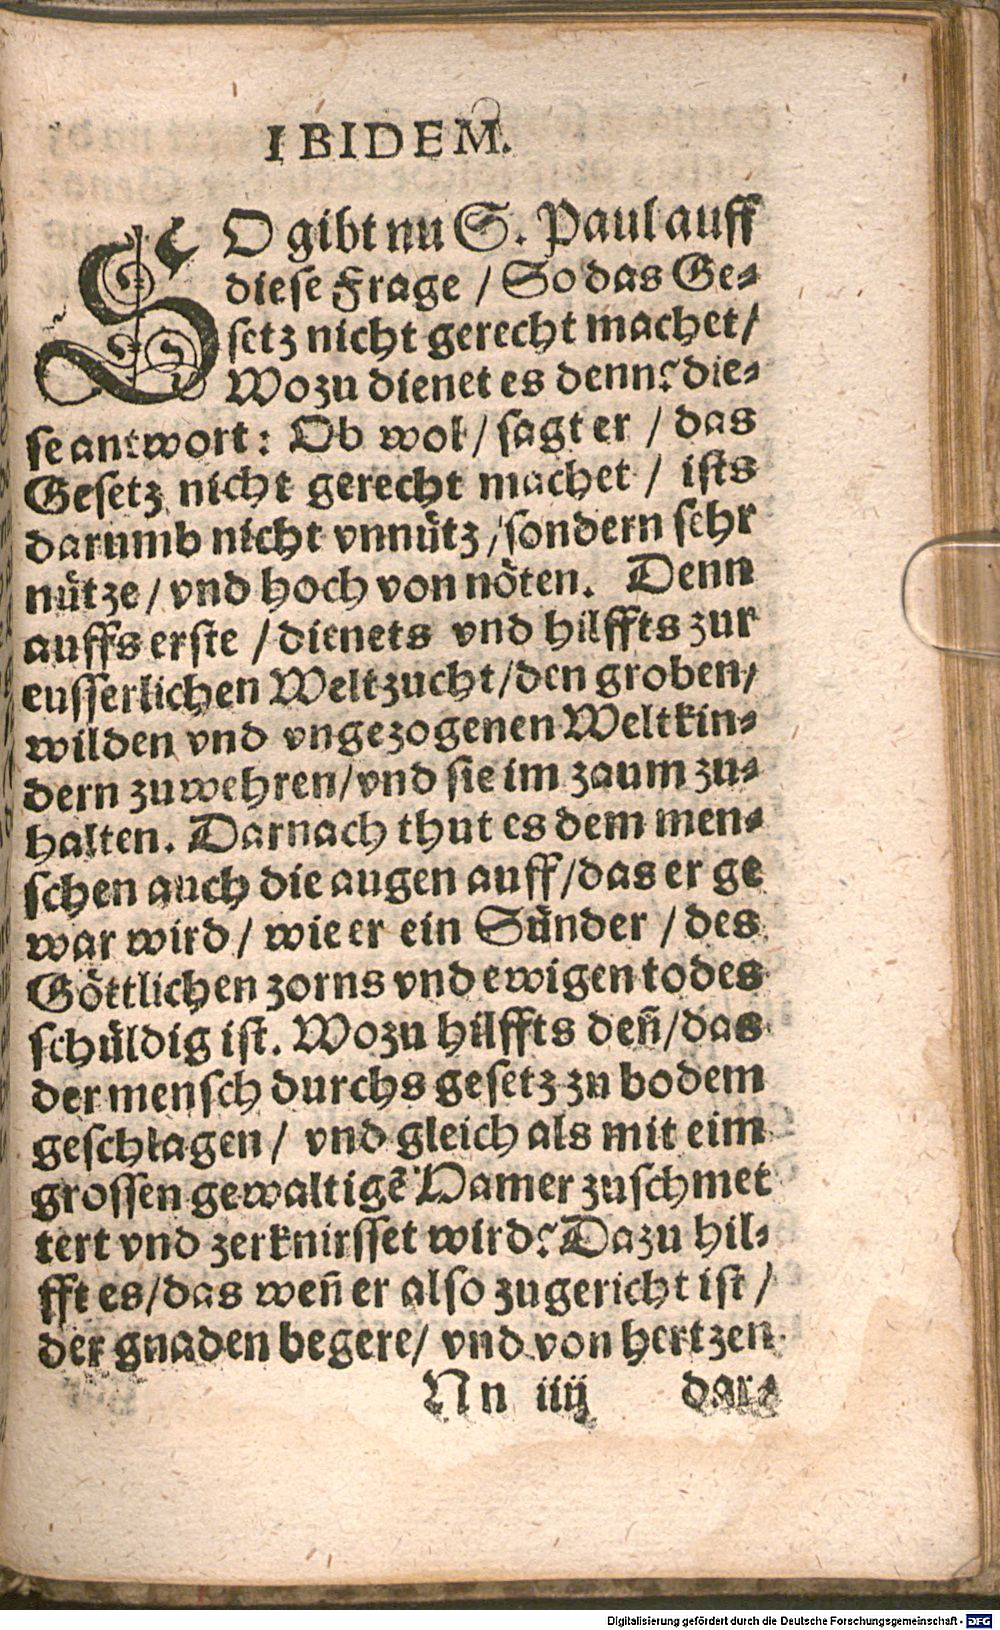 IBIDEM.
SO gibt nu S. Paul auff
diese Frage / So das Ge-
setz nicht gerecht machet /
Wozu dienet es denn? die-
se antwort: Ob wol / sagt er / das
Gesetz nicht gerecht machet / ists
darumb nicht vnnütz / sondern sehr
nütze / vnd hoch von nöten. Denn
auffs erste / dienets vnd hilffts zur
eusserlichen Weltzucht / den groben /
wilden vnd vngezogenen Weltkin-
dern zuwehren / vnd sie im zaum zu-
halten. Darnach thut es dem men-
schen auch die augen auff / das er ge
war wird / wie er ein Sünder / des
Göttlichen zorns vnd ewigen todes
schüldig ist. Wozu hilffts deñ / das
der mensch durchs gesetz zu bodem
geschlagen / vnd gleich als mit eim
grossen gewaltigẽ Hamer zuschmet
tert vnd zerknirsset wird? Dazu hil-
fft es / das weñ er also zugericht ist /
der gnaden begere / vnd von hertzen
Nn iiij dar-
Digitalisierung gefördert durch die Deutsche Forschungsgemeinschaft - DFG